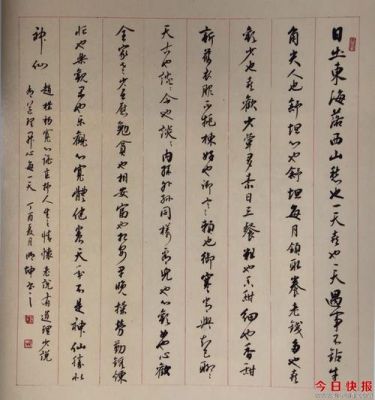 日出東海落西山愁也一天喜也一天遇事不钻牛
角尖人也舒坦心也舒坦每月領取養老錢多也喜
歡少也喜歡少葷多素日三餐粗也香甜細也香甜
新舊衣服不挑揀好也御寒賴也御寒常與知己聊
天古也談談今也談談内孫外孫同樣看兒也心歡女也心歡
全家老少互慰勉貧也相安富也相安早晚操勞勤鍛煉
忙也樂觀閑也樂觀心寬體健養天年不是神仙勝似
神仙
趙樸初寬心謠 人生之情懷 道理少說
理開心每一天 丁酉夏月 坤書之
今日快报